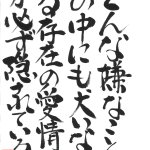 んな嫌なこ
の中にも大いな
る存在の愛情
が必ず隠れている